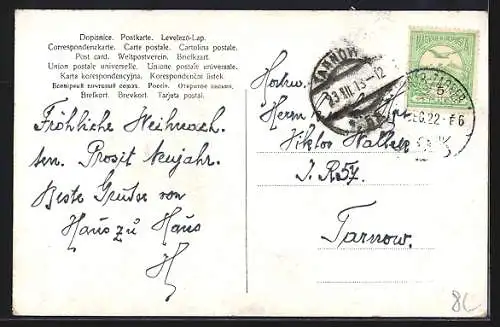 Dopisnice. Postkarte. Levelező-Lap.
Correspondenzkarte. Carte postale. Cartolina postale.
Post card. Weltpostverein. Briefkaart.
Union postale universelle. Unione postale universale.
Karta korespondencyjna. Korespondenční listek.
Всемірный почтовый союзъ. Россія. Открытое письмо.
Brefkort. Brevkort. Tarjeta postal.
Fröhliche Weihnach-
ten. Prosit Neujahr.
Beste Grüsse von
Haus zu Haus
H
TARNÓW
23.XII.13-12
22
6
Hochw.
Herrn
Viktor
I. R 57.
Tarnow.
8L